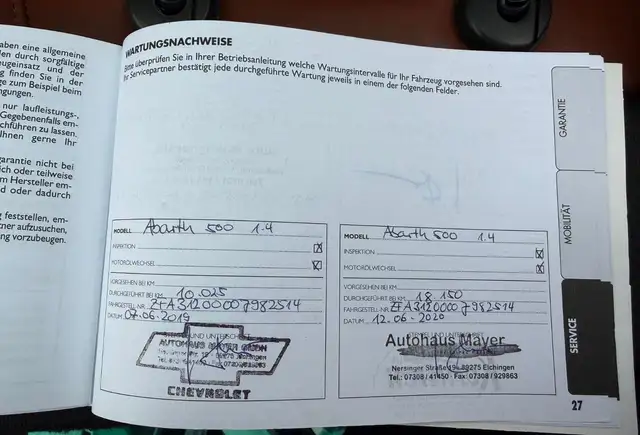 aben eine allgemeine
den durch sorgfältige
eugeinsatz und der
g finden Sie in der
ge zum Beispiel beim
ngungen.
nur laufleistungs-,
Gegebenenfalls em-
chführen zu lassen.
Ihnen gerne Ihr
garantie nicht bei
ich oder teilweise
m Hersteller em-
d oder dadurch
g feststellen, em-
rtner aufzusuchen,
ng vorzubeugen.
WARTUNGSNACHWEISE
Bitte überprüfen Sie in Ihrer Betriebsanleitung welche Wartungsintervalle für Ihr Fahrzeug vorgesehen sind.
Ihr Servicepartner bestätigt jede durchgeführte Wartung jeweils in einem der folgenden Felder.
MODELL Abarth 500 1.4
INSPEKTION X
MOTORÖLWECHSEL X
VORGESEHEN BEI KM
DURCHGEFÜHRT BEI KM 10.025
FAHRGESTELL-NR. ZFA31200007982514
DATUM 07.06.2019
STEMPEL UND UNTERSCHRIFT
AUTOHAUS MAYER GMBH
89275 Elchingen
CHEVROLET
MODELL Abarth 500 1.4
INSPEKTION X
MOTORÖLWECHSEL X
VORGESEHEN BEI KM
DURCHGEFÜHRT BEI KM 18.150
FAHRGESTELL-NR. ZFA31200007982514
DATUM 12.06.2020
STEMPEL UND UNTERSCHRIFT
Autohaus Mayer
Nersinger Straße 19 · 89275 Elchingen
Tel.: 07308 / 41450 · Fax: 07308 / 929863
GARANTIE
MOBILITÄT
SERVICE
27